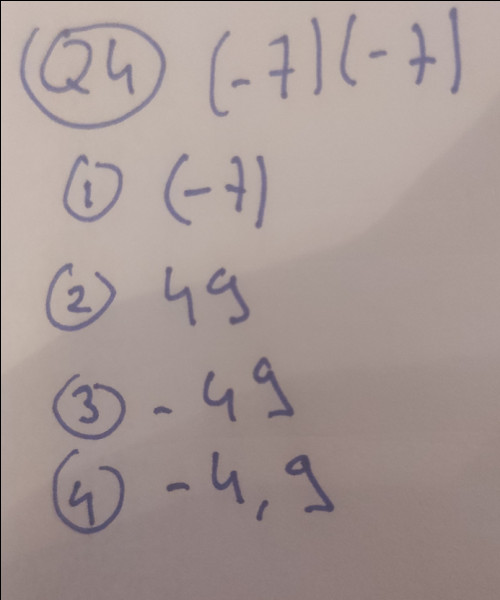 Q4 (-7)(-7)
1 (-7)
2 49
3 - 49
4 - 4,9